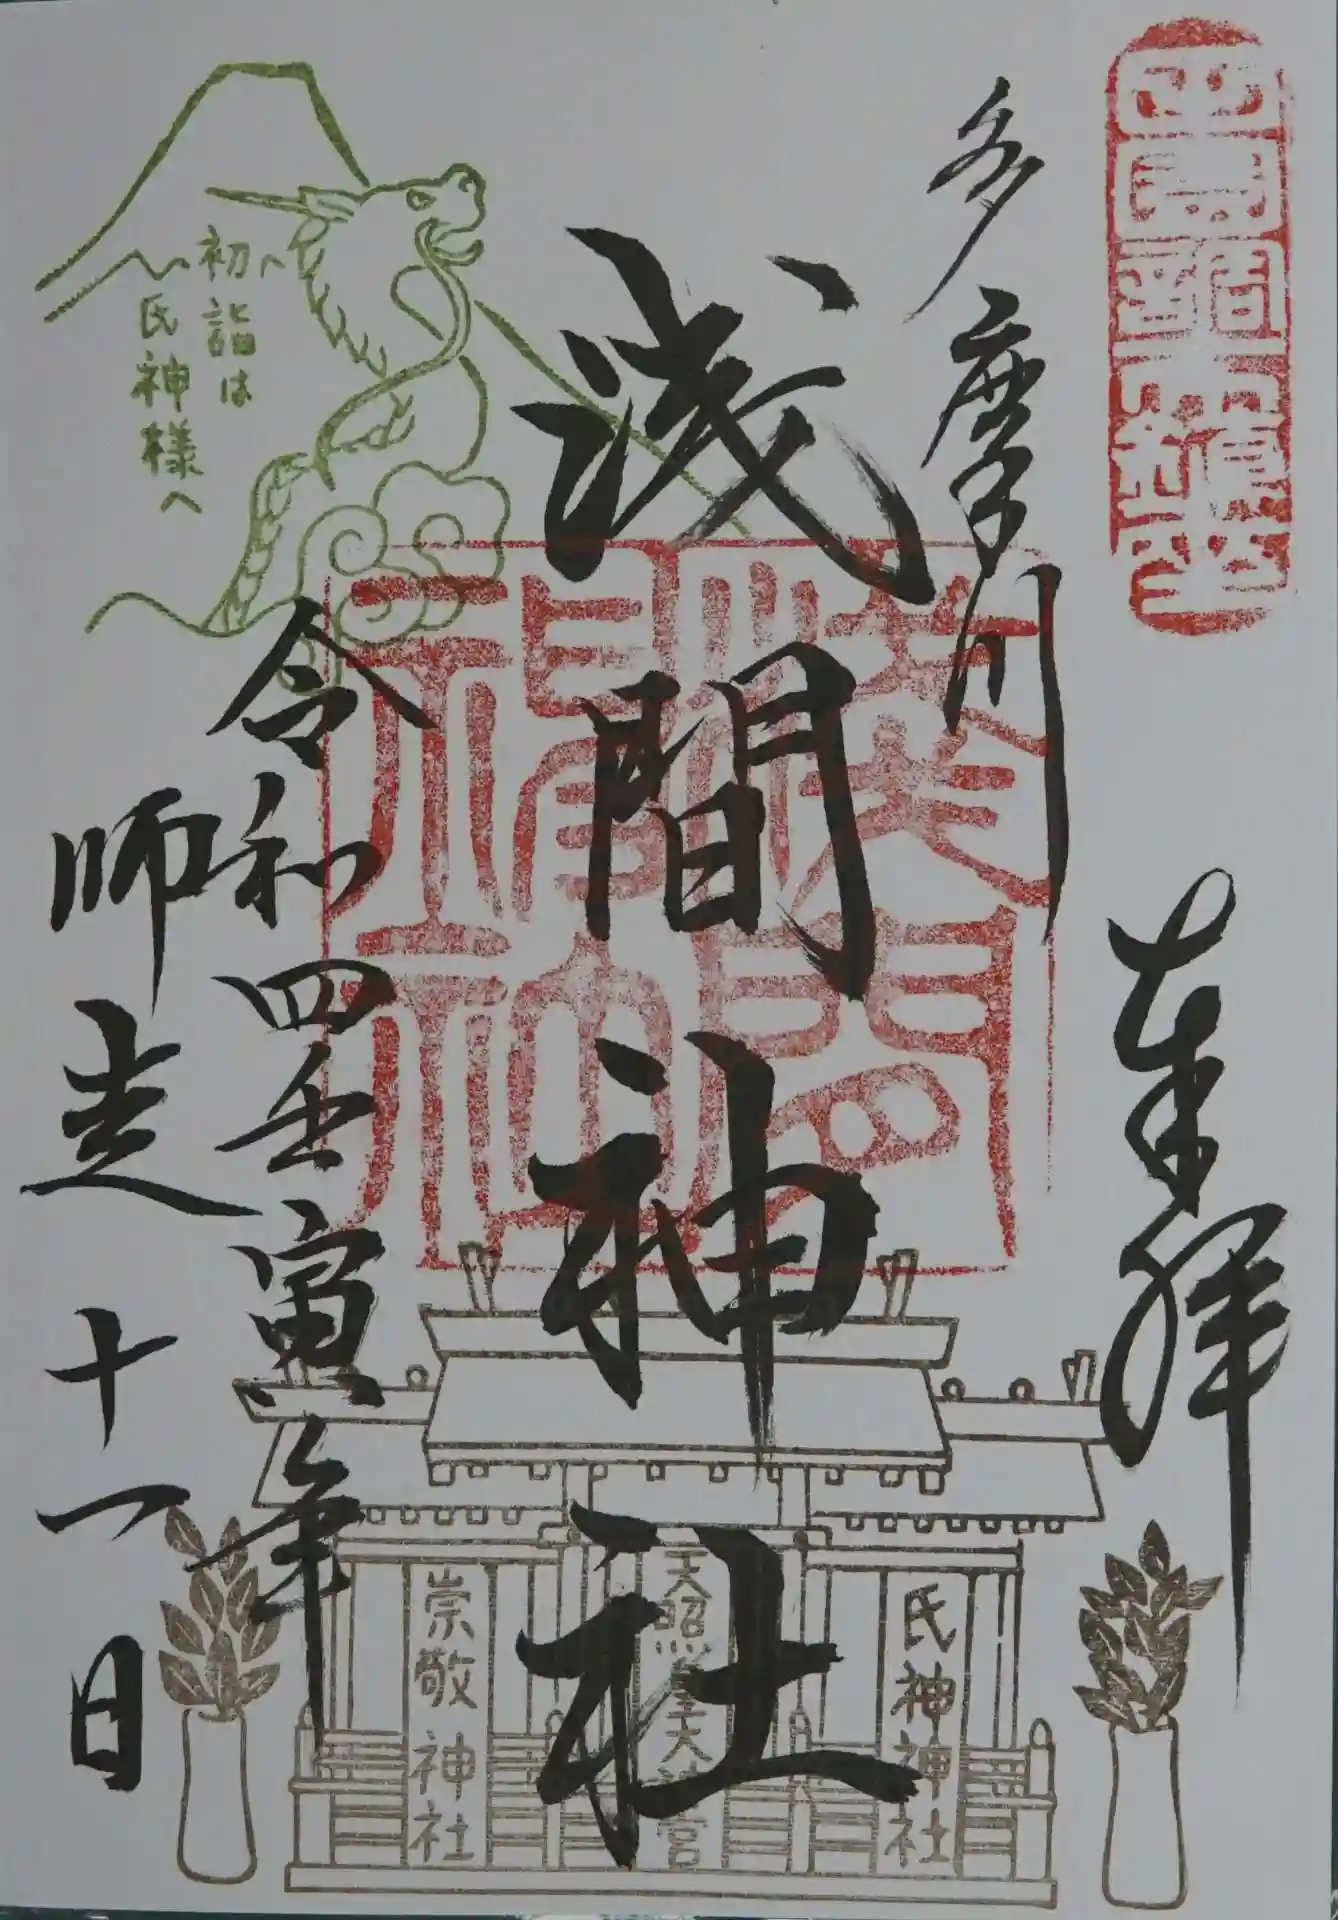 奉拝
多摩川
浅間神社
令和四壬寅年
師走十一日
初詣は
氏神様へ
氏神神社
天照皇大神宮
崇敬神社